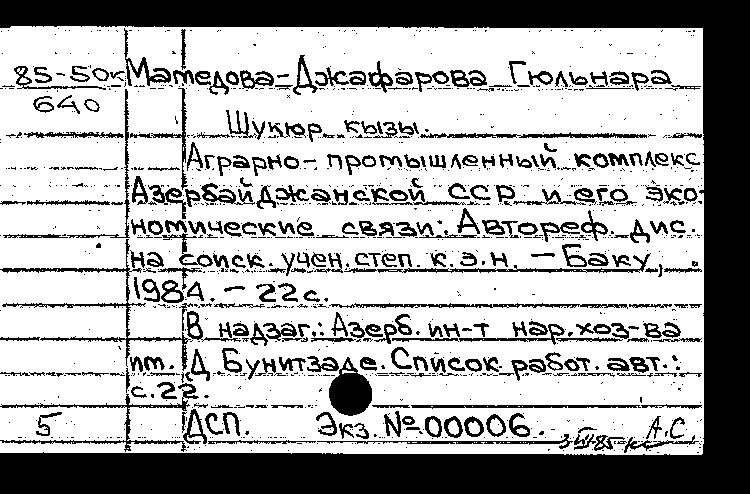 85-50к Мамедова-Джафарова Гюльнара
640
Шукюр кызы.
Аграрно-промышленный комплекс
Азербайджанской ССР и его эко-
номические связи: Автореф. дис.
на соиск. учен. степ. к.э.н. — Баку,
1984. - 22с.
В надзаг.: Азерб. ин-т нар. хоз-ва
им. Д Бунитзаде. Список работ. авт.:
с.22.
5 ДСП. Экз. №00006.
А.С.